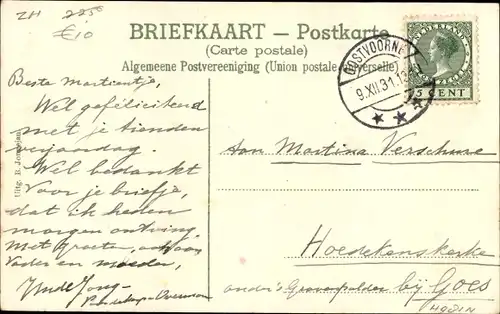 ZH 225°
€10
BRIEFKAART — Postkarte
(Carte postale)
Algemeene Postvereeniging (Union postale universelle)
NEDERLAND
5 CENT
OOSTVOORNE
9.XII.31.13
Beste Martientje,
Wel gefeliciteerd
met je tienden
verjaardag.
Wel bedankt
voor je briefje,
dat ik heden
morgen ontving.
Met groeten, ook aan
Vader en moeder,
Uitg. B.
Aan Martina Verschure
Hoedekenskerke
bij Goes